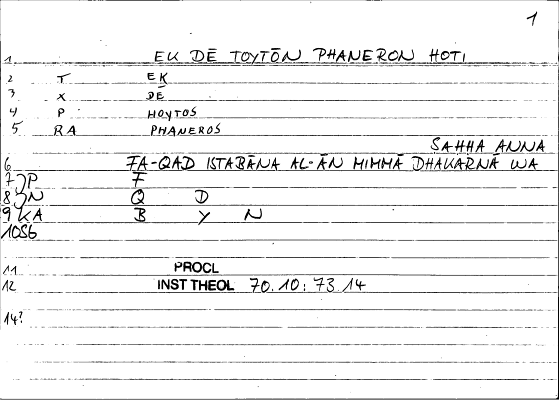 1
1 EK DĒ TOYTŌN PHANERON HOTI
2 T EK
3 X DĒ
4 P HOYTOS
5 RA PHANEROS
SAHHA ANNA
6 FA-QAD ISTABĀNA AL-ĀN MIMMĀ DHAKARNĀ WA
7 P F
8 N Q D
9 KA B Y N
10S6
11 PROCL
12 INST THEOL 70.10: 73.14
14?